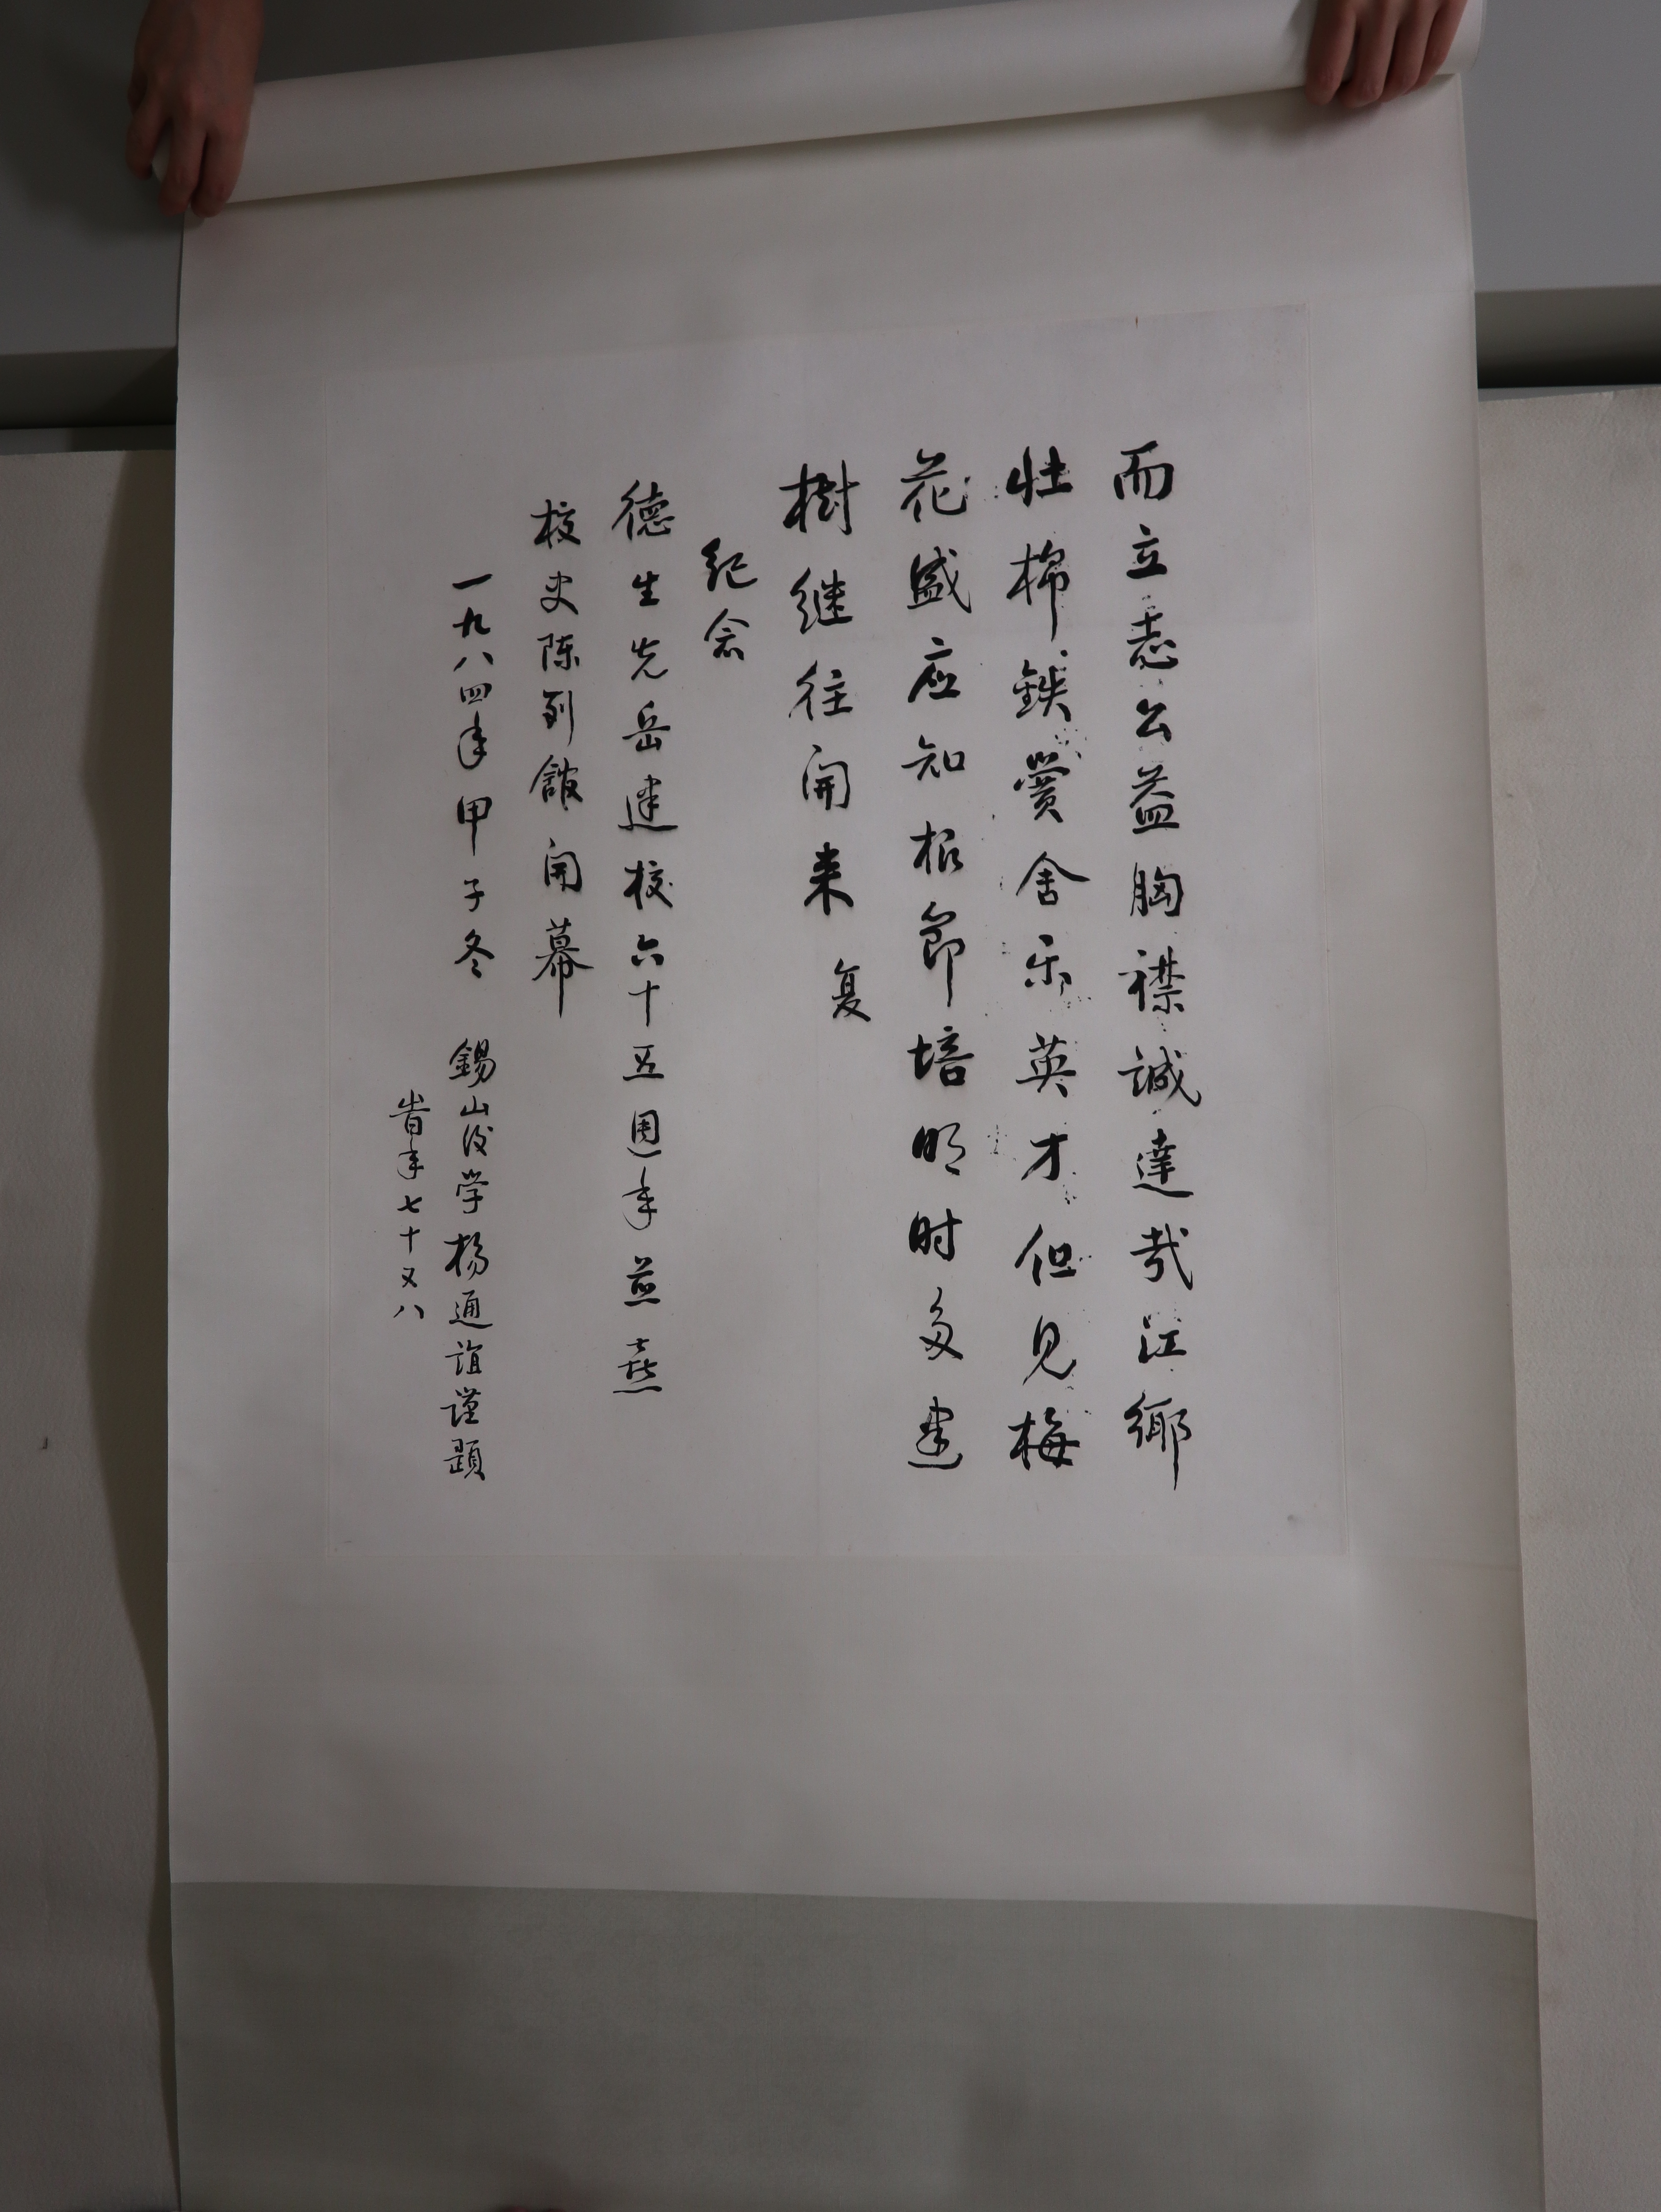 而立志公益胸襟誠達哉江鄉
壮棉鉄黌舍乐英才但見梅
花盛应知根節培明时多建
樹继往開来 复
紀念
德生先岳建校六十五週年並喜
校史陈列館開幕
一九八四年甲子冬 錫山後学楊通誼謹題
旹年七十又八